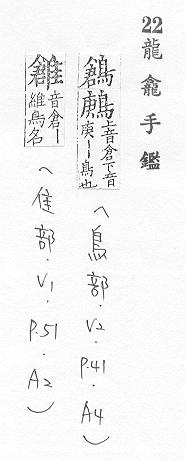 22 龍龕手鑑
鶬鶊 上音倉下音庚丨鳥也
(鳥部.V2.P.41.A4)
音倉丨維鳥名
(隹部.V1.P.51.A2)